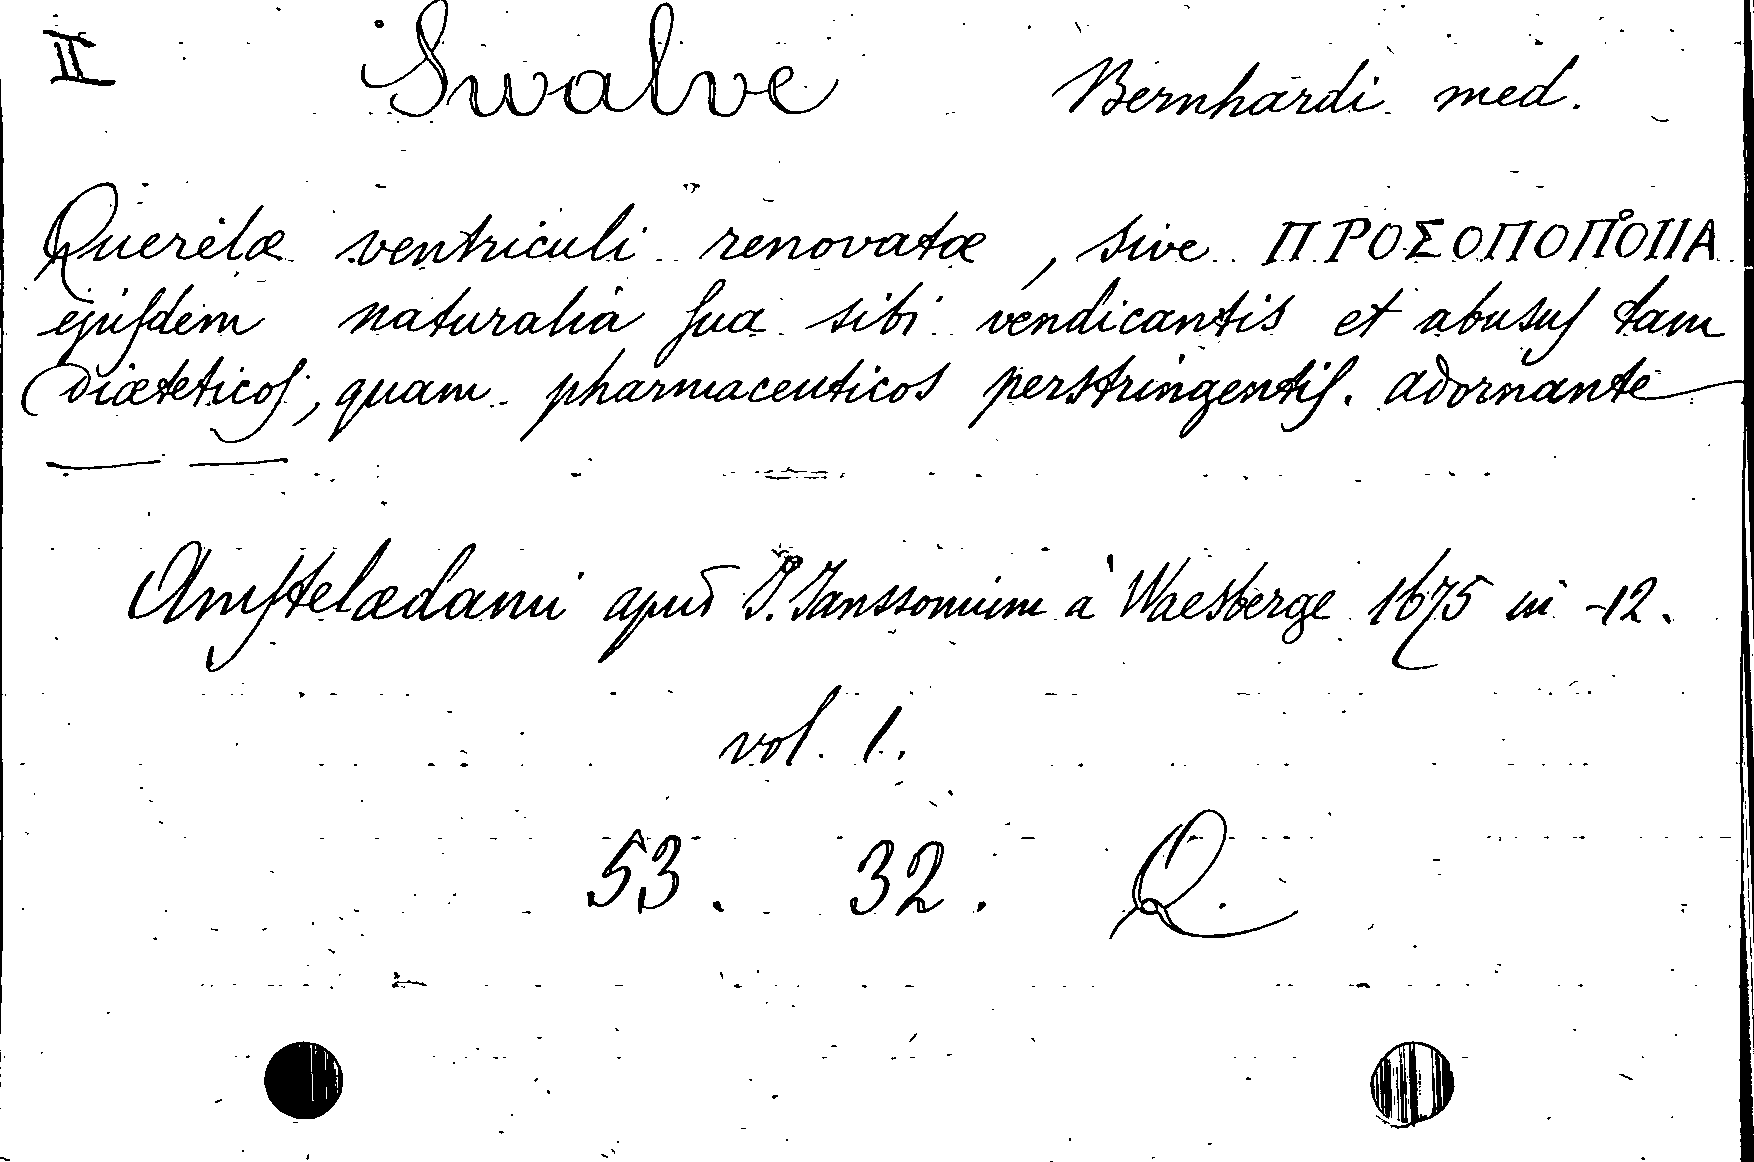 II Swalve Bernhardi med.
Querelæ ventriculi renovatæ, sive ΠΡΟΣΟΠΟΠΟΙΙΑ
ejuſdem naturalia ſua sibi vendicantis et abusuſ tam
diæteticoſ, quam pharmaceuticos perstringentiſ. adornante
— —
Amſtelædami apud J. Janssonium à Waesberge 1675 in -12.
vol. 1.
53. 32. Q.